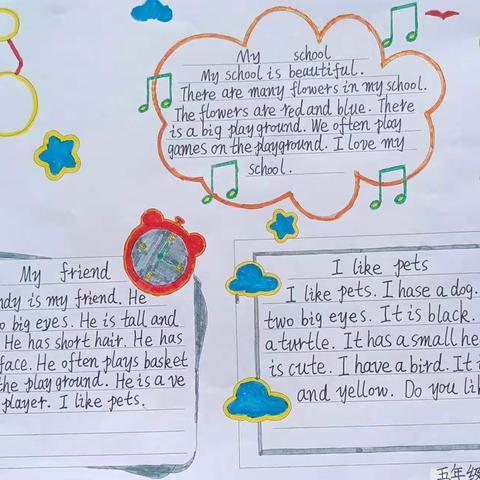 My school
My school is beautiful.
There are many flowers in my school.
The flowers are red and blue. There
is a big playground. We often play
games on the playground. I love my
school.
My friend
ndy is my friend. He
o big eyes. He is tall and
He has short hair. He has
face. He often plays basket
the playground. He is a ve
player. I like pets.
I like pets
I like pets. I hase a dog.
two big eyes. It is black.
a turtle. It has a small he
is cute. I have a bird. It i
and yellow. Do you lik
五年级